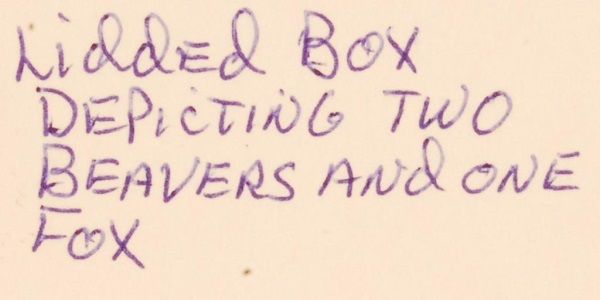 Lidded Box
Depicting Two
Beavers and one
Fox